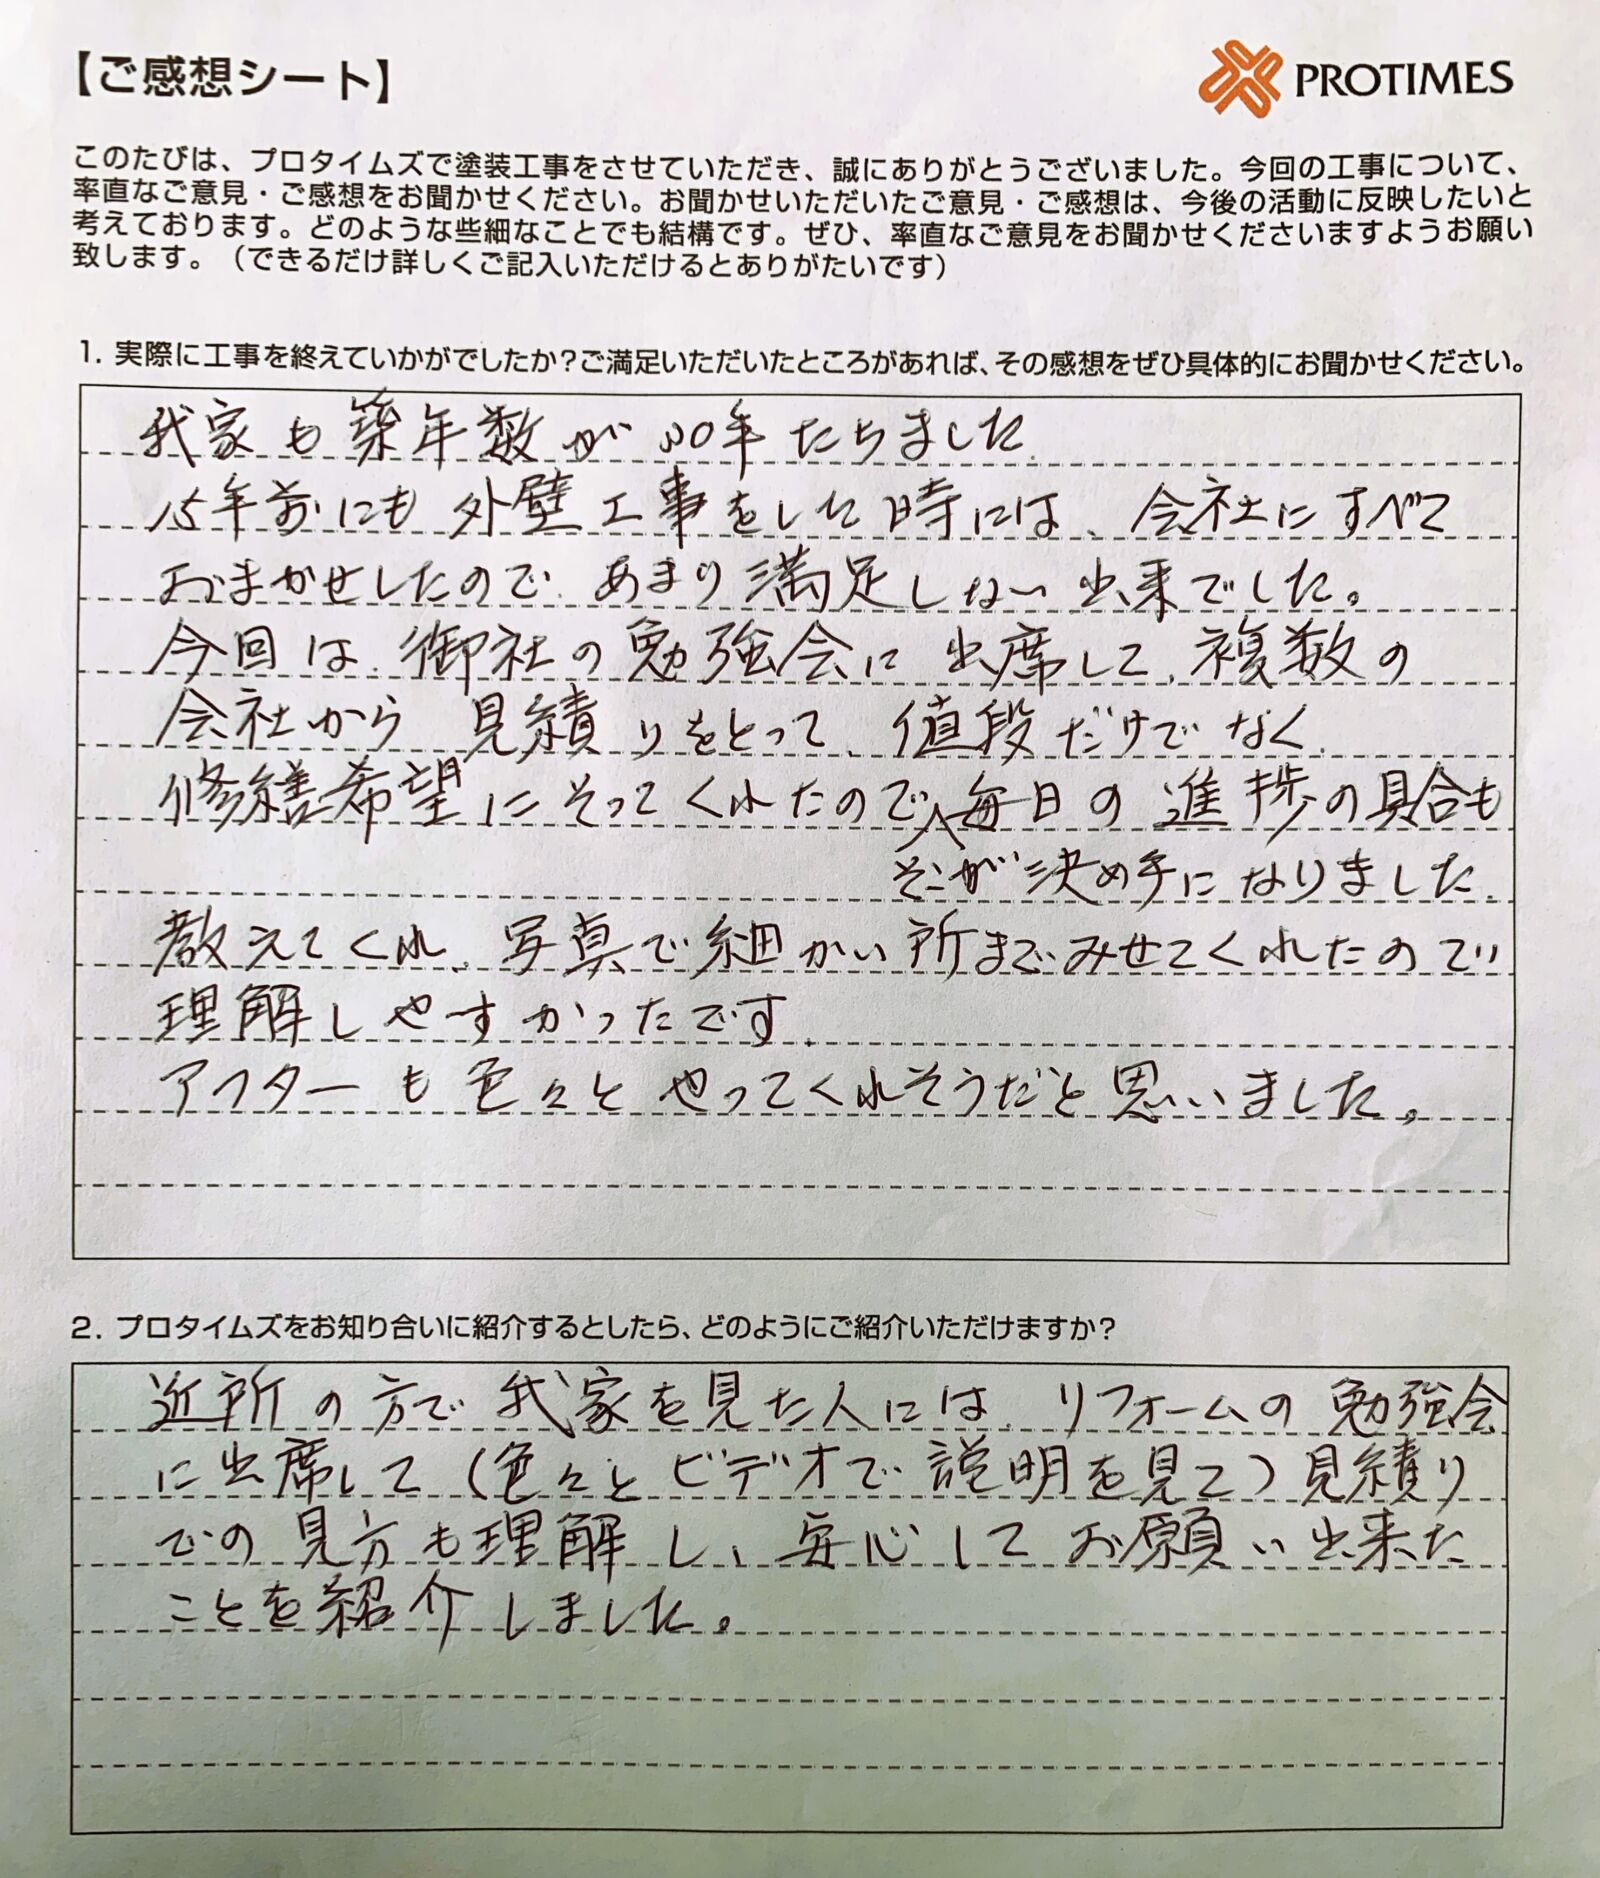 【ご感想シート】
PROTIMES
このたびは、プロタイムズで塗装工事をさせていただき、誠にありがとうございました。今回の工事について、
率直なご意見・ご感想をお聞かせください。お聞かせいただいたご意見・ご感想は、今後の活動に反映したいと
考えております。どのような些細なことでも結構です。ぜひ、率直なご意見をお聞かせくださいますようお願い
致します。（できるだけ詳しくご記入いただけるとありがたいです）
1. 実際に工事を終えていかがでしたか？ご満足いただいたところがあれば、その感想をぜひ具体的にお聞かせください。
我家も築年数が30年たちました.
15年前にも外壁工事をした時には、会社にすべて
おまかせしたので、あまり満足しない出来でした。
今回は、御社の勉強会に出席して、複数の
会社から見積りをとって、値段だけでなく、
修繕希望にそってくれたので、毎日の進捗の具合も
そこが決め手になりました.
教えてくれ、写真で細かい所までみせてくれたので
理解しやすかったです.
アフターも色々とやってくれそうだと思いました。
2. プロタイムズをお知り合いに紹介するとしたら、どのようにご紹介いただけますか？
近所の方で我家を見た人には、リフォームの勉強会
に出席して（色々とビデオで説明を見て）見積り
での見方も理解し、安心してお願い出来た
ことを紹介しました。